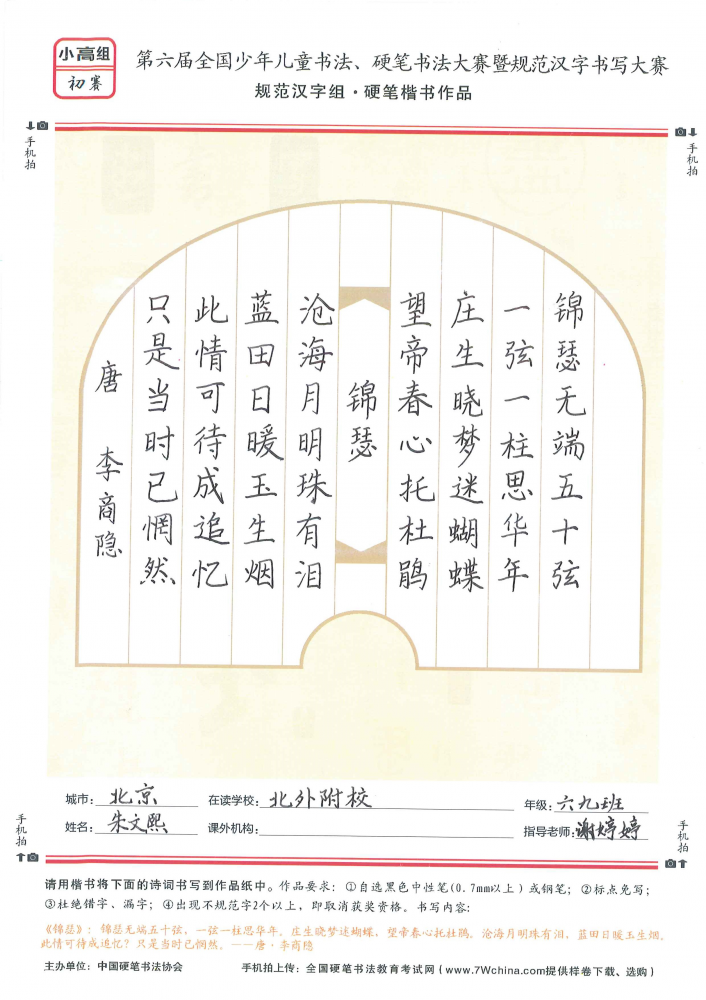 小高组
初赛
第六届全国少年儿童书法、硬笔书法大赛暨规范汉字书写大赛
规范汉字组·硬笔楷书作品
手机拍
手机拍
锦瑟无端五十弦
一弦一柱思华年
庄生晓梦迷蝴蝶
望帝春心托杜鹃
锦瑟
沧海月明珠有泪
蓝田日暖玉生烟
此情可待成追忆
只是当时已惘然
唐 李商隐
城市：北京 在读学校：北外附校 年级：六九班
姓名：朱文熙 课外机构： 指导老师：谢婷婷
手机拍
手机拍
请用楷书将下面的诗词书写到作品纸中。作品要求：①自选黑色中性笔(0.7mm以上)或钢笔；②标点免写；
③杜绝错字、漏字；④出现不规范字2个以上，即取消获奖资格。书写内容：
《锦瑟》：锦瑟无端五十弦，一弦一柱思华年。庄生晓梦迷蝴蝶，望帝春心托杜鹃。沧海月明珠有泪，蓝田日暖玉生烟。
此情可待成追忆？只是当时已惘然。——唐·李商隐
主办单位：中国硬笔书法协会 手机拍上传：全国硬笔书法教育考试网（www.7Wchina.com提供样卷下载、选购）